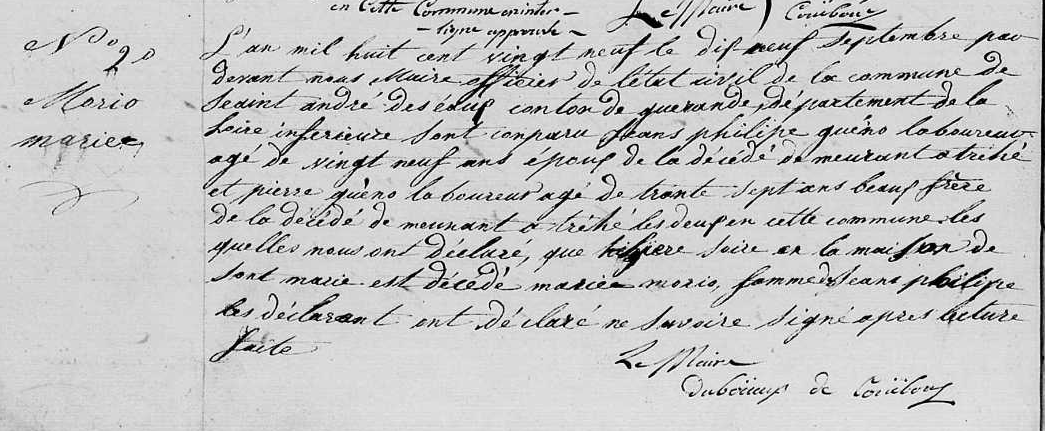 en Cette Commune en inter-
- ligne approuvé -
Le Maire
Coüëbouc
N° 2°
Morio
mariee
L'an mil huit cent vingt neuf le dix-neuf Septembre par
devant nous Maire officier de l'état civil de la commune de
Seaint andré des eaux conton de guerande, département de la
Loire inferieure sont conparu Jeans philipe guéno laboureur
agé de vingt neuf ans époux de la décédé demeurant a tréhé
et pierre guéno laboureur agé de trante sept ans beaux frère
de la décédé demeurant a tréhé les deux en cette commune les
quelles nous ont déclaré, que hiere soire en la maison de
sont marie est décédé mariee morio, famme de Jeans philipe
les déclarant ont déclaré ne savoire signé apres lecture
faite
Le Maire
de